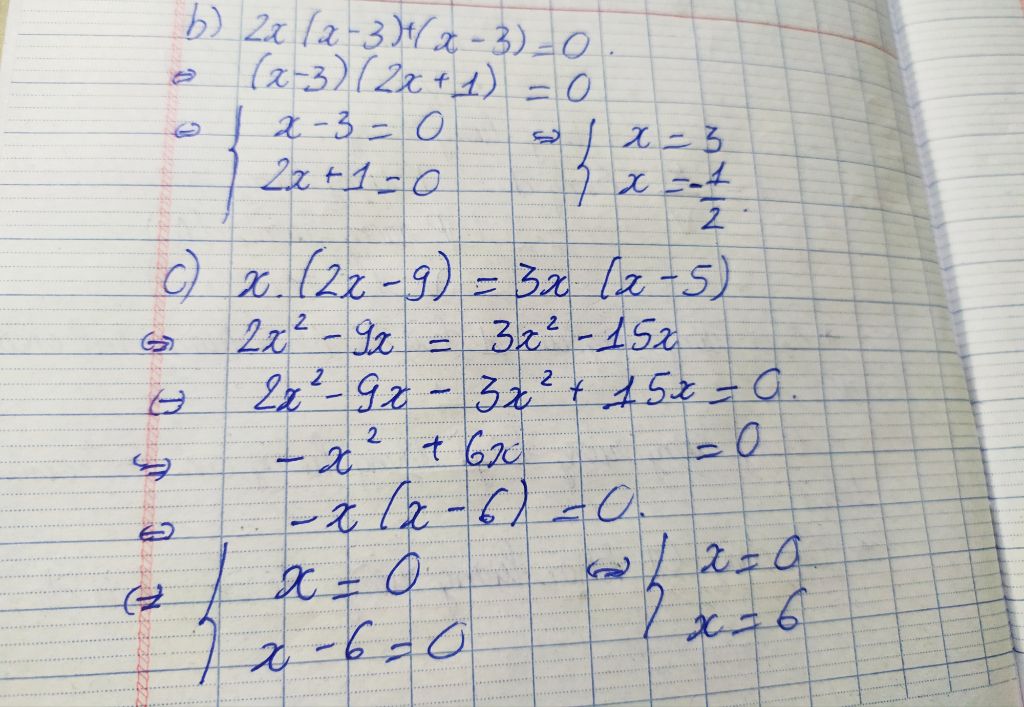 b) 2x (x-3)+(x-3) = 0.
⇔ (x-3)(2x+1) = 0
⇔ { x-3 = 0 ⇔ { x = 3
2x+1 = 0 x = -1/2.
c) x.(2x-9) = 3x (x-5)
⇔ 2x² - 9x = 3x² - 15x
⇔ 2x² - 9x - 3x² + 15x = 0.
⇔ - x² + 6x = 0
⇔ - x (x-6) = 0.
⇔ { x = 0 ⇔ { x = 0.
x - 6 = 0 x = 6